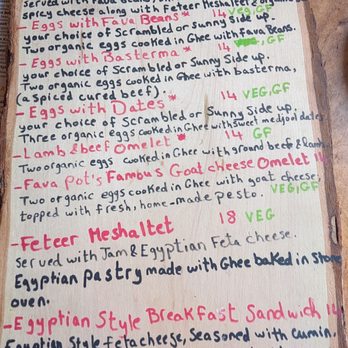 served with
spicy cheese along with Feteer Meshaltet
- Eggs with Fava Beans * 14 VEG, GF
your choice of Scrambled or Sunny Side up.
Two organic eggs cooked in Ghee with fava Beans.
- Eggs with Basterma * 14 GF
your choice of Scrambled or Sunny Side up.
Two organic eggs cooked in Ghee with basterma,
(a spiced cured beef).
- Eggs with Dates * 14 VEG, GF
your choice of Scrambled or Sunny Side up.
Three organic eggs cooked in Ghee with sweet medjool dates
- Lamb & beef Omelet * 14 GF
Two organic eggs cooked in Ghee with ground beef & lamb.
- Fava Pot's Famous Goat cheese Omelet 14
Two organic eggs cooked in Ghee with goat cheese,
topped with fresh, home-made pesto. VEG, GF
- Feteer Meshaltet 18 VEG
Served with Jam & Egyptian Feta cheese.
Egyptian pastry made with Ghee baked in stone
oven.
- Egyptian Style Breakfast Sandwich 14
Egyptian Style feta cheese, Seasoned with cumin.